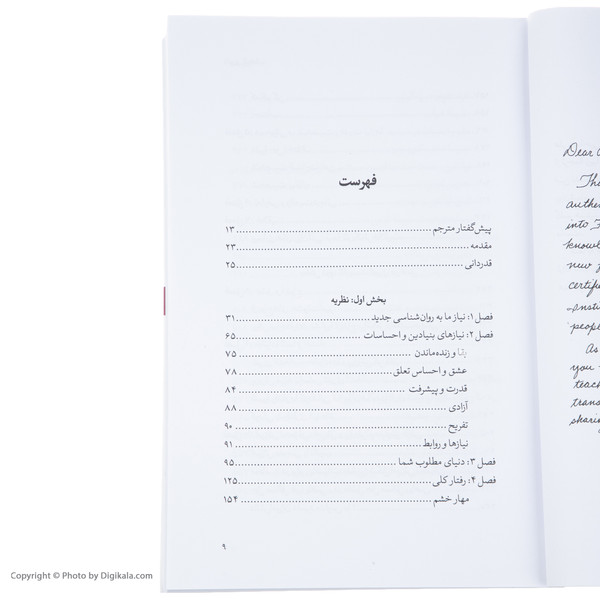 فهرست
پیش‌گفتار مترجم ........ ۱۳
مقدمه ........ ۲۳
قدردانی ........ ۲۵
بخش اول: نظریه
فصل ۱: نیاز ما به روان‌شناسی جدید ........ ۳۱
فصل ۲: نیازهای بنیادین و احساسات ........ ۶۵
بقا و زنده‌ماندن ........ ۷۵
عشق و احساس تعلق ........ ۷۸
قدرت و پیشرفت ........ ۸۴
آزادی ........ ۸۸
تفریح ........ ۹۰
نیازها و روابط ........ ۹۱
فصل ۳: دنیای مطلوب شما ........ ۹۵
فصل ۴: رفتار کلی ........ ۱۲۵
مهار خشم ........ ۱۵۴
۹
Dear
into
new
people
As
you
Copyright © Photo by Digikala.com